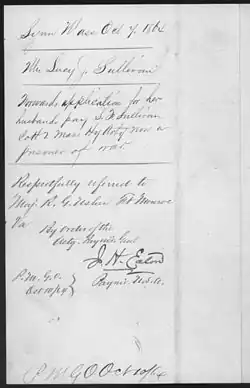 Lynn Mass Oct 7, 1864
Mrs Lucy J Sullivan
Forwards application for her
husbands pay S. F. Sullivan
Co H 2 Mass Hy Arty now a
prisoner of war
Respectfully referred to
Maj. R. G. Usher Ft Monroe
Va
By order of the
Actg. Paymr. Genl
J. H. Eaton
P. M. G. O.
Oct 10/64
Paymr. U.S.A.
P.M.G.O Oct 10/64